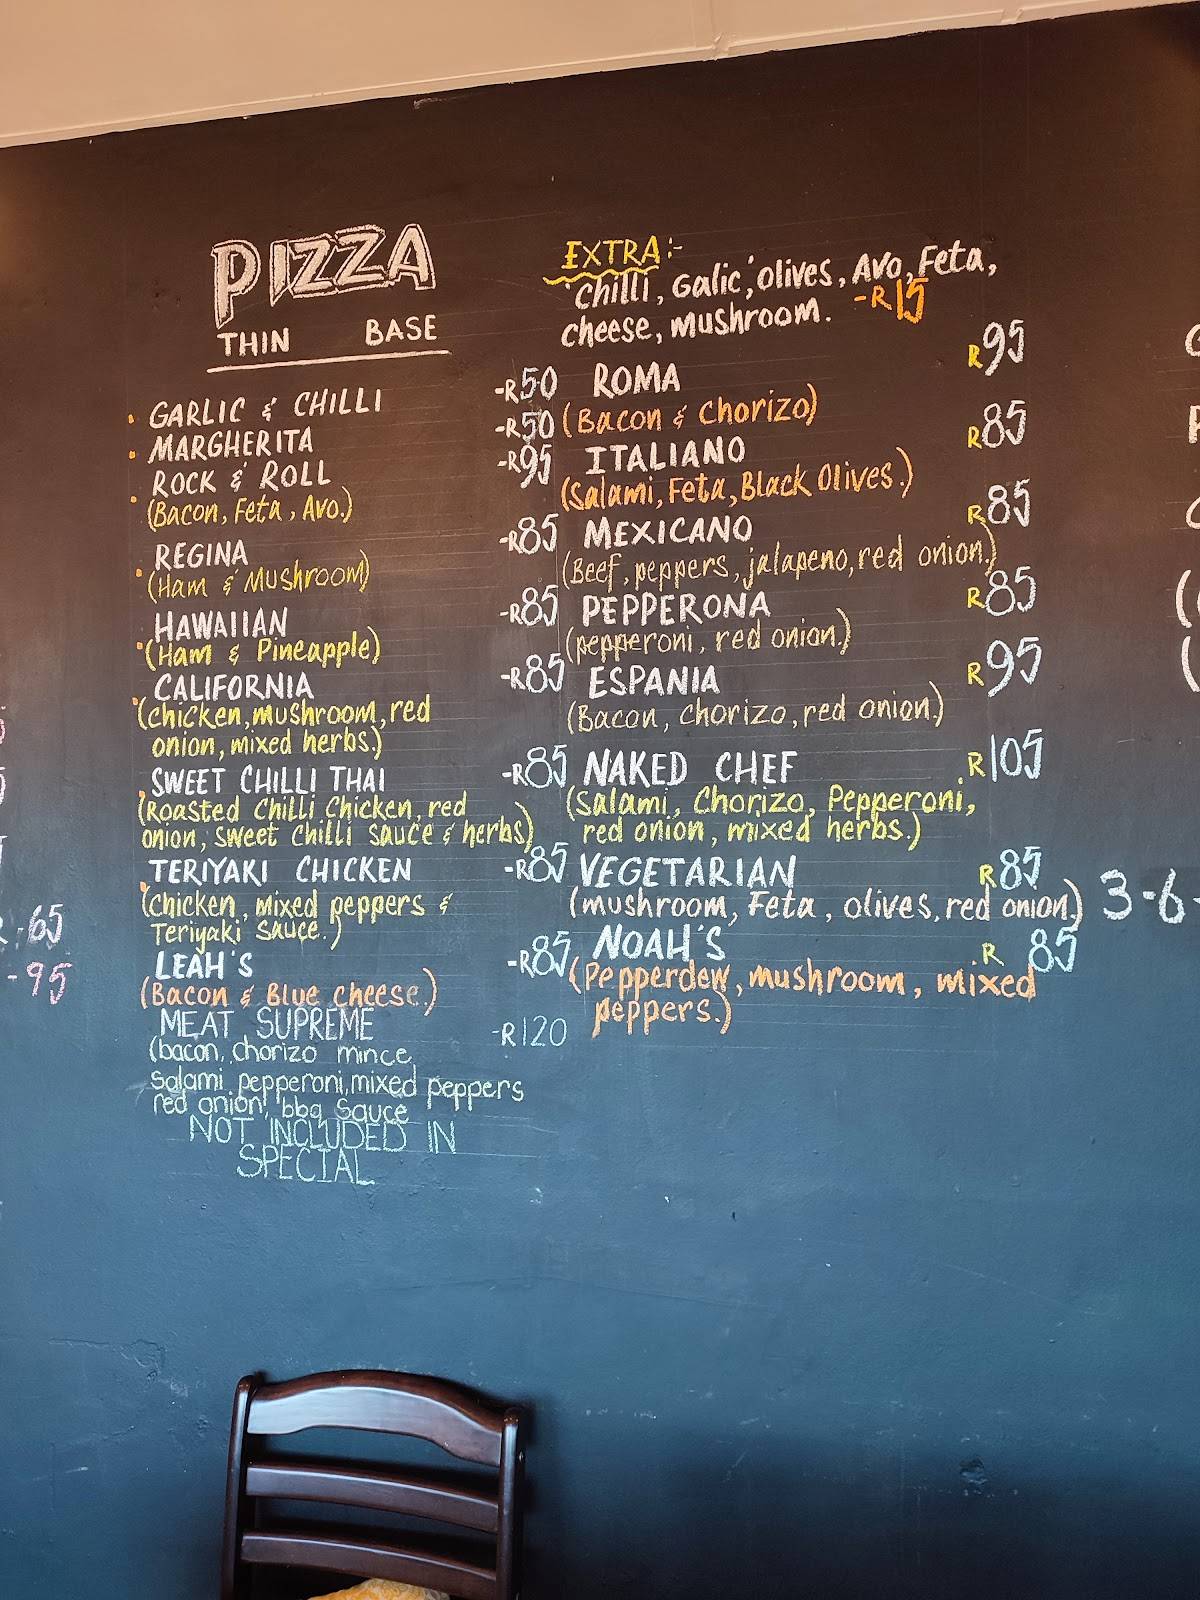 PIZZA
THIN BASE
GARLIC & CHILLI -R50
MARGHERITA -R50
ROCK & ROLL -R95
(Bacon, Feta, Avo.)
REGINA -R85
(Ham & Mushroom)
HAWAIIAN -R85
(Ham & Pineapple)
CALIFORNIA -R85
(chicken, mushroom, red
onion, mixed herbs.)
SWEET CHILLI THAI -R85
(Roasted Chilli Chicken, red
onion, sweet chilli sauce & herbs)
TERIYAKI CHICKEN -R85
(Chicken, mixed peppers &
Teriyaki sauce.)
LEAH'S -R85
(Bacon & Blue cheese.)
MEAT SUPREME -R120
(bacon, chorizo mince
salami pepperoni, mixed peppers
red onion, bbq sauce
NOT INCLUDED IN
SPECIAL
EXTRA:-
Chilli, Galic, olives, Avo, Feta,
cheese, mushroom. -R15
ROMA R95
(Bacon & Chorizo)
ITALIANO R85
(Salami, Feta, Black Olives.)
MEXICANO R85
(Beef, peppers, jalapeno, red onion.)
PEPPERONA R85
(pepperoni, red onion.)
ESPANIA R95
(Bacon, chorizo, red onion.)
NAKED CHEF R105
(Salami, Chorizo, Pepperoni,
red onion, mixed herbs.)
VEGETARIAN R85
(mushroom, Feta, olives, red onion.)
NOAH'S R 85
(Pepperdew, mushroom, mixed
peppers.)
65
-95
3-6-